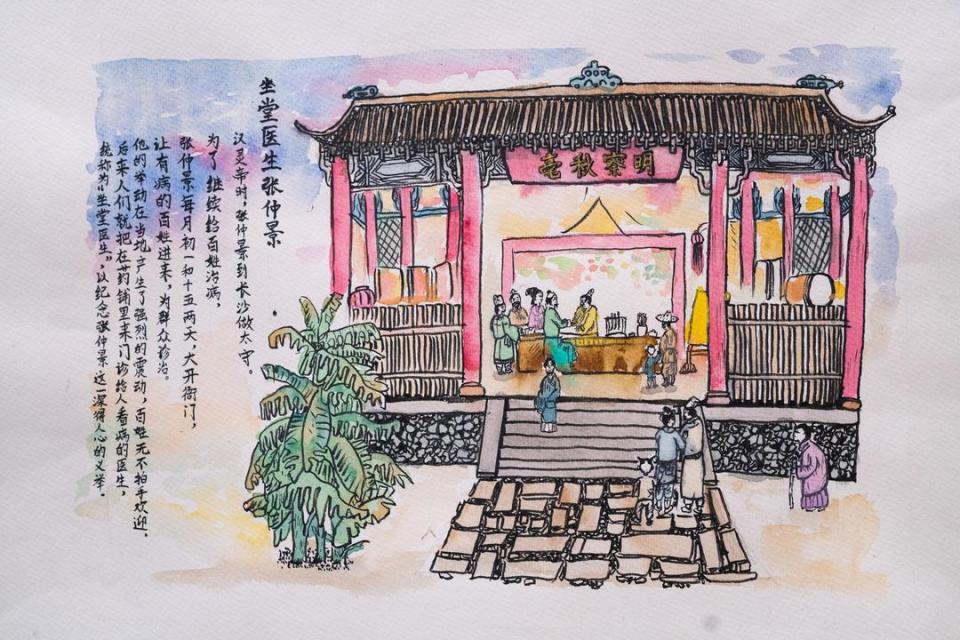 坐堂医生张仲景
汉灵帝时，张仲景到长沙做太守。
为了继续给百姓治病，
张仲景每月初一和十五两天，大开衙门，
让有病的百姓进来，为群众诊治。
他的举动在当地产生了强烈的震动，百姓无不拍手欢迎.
后来人们就把在药铺里来门诊给人看病的医生，
统称为“坐堂医生”，以纪念张仲景这一深得人心的义举。
明察秋毫